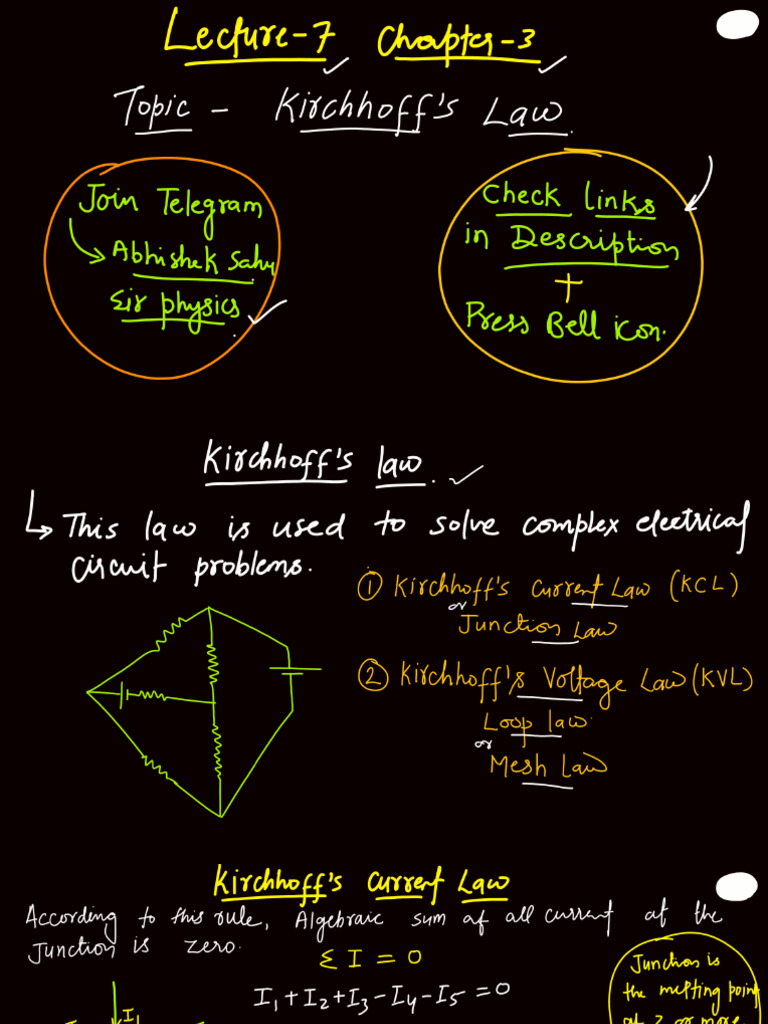 Lecture-7 Chapter-3
Topic - Kirchhoff's Law.
Join Telegram
Abhishek Sahu
Sir physics.
Check links
in Description
+
Press Bell icon.
Kirchhoff's law.
This law is used to solve complex electrical
circuit problems.
① Kirchhoff's Current Law (KCL)
or
Junction Law
② Kirchhoff's Voltage Law (KVL)
Loop law
or
Mesh Law
Kirchhoff's Current Law
According to this rule, Algebraic sum of all current at the
Junction is zero.
Σ I = 0
I₁+I₂+I₃-I₄-I₅=0
Junction is
the melting point
of 2 or more
I₁